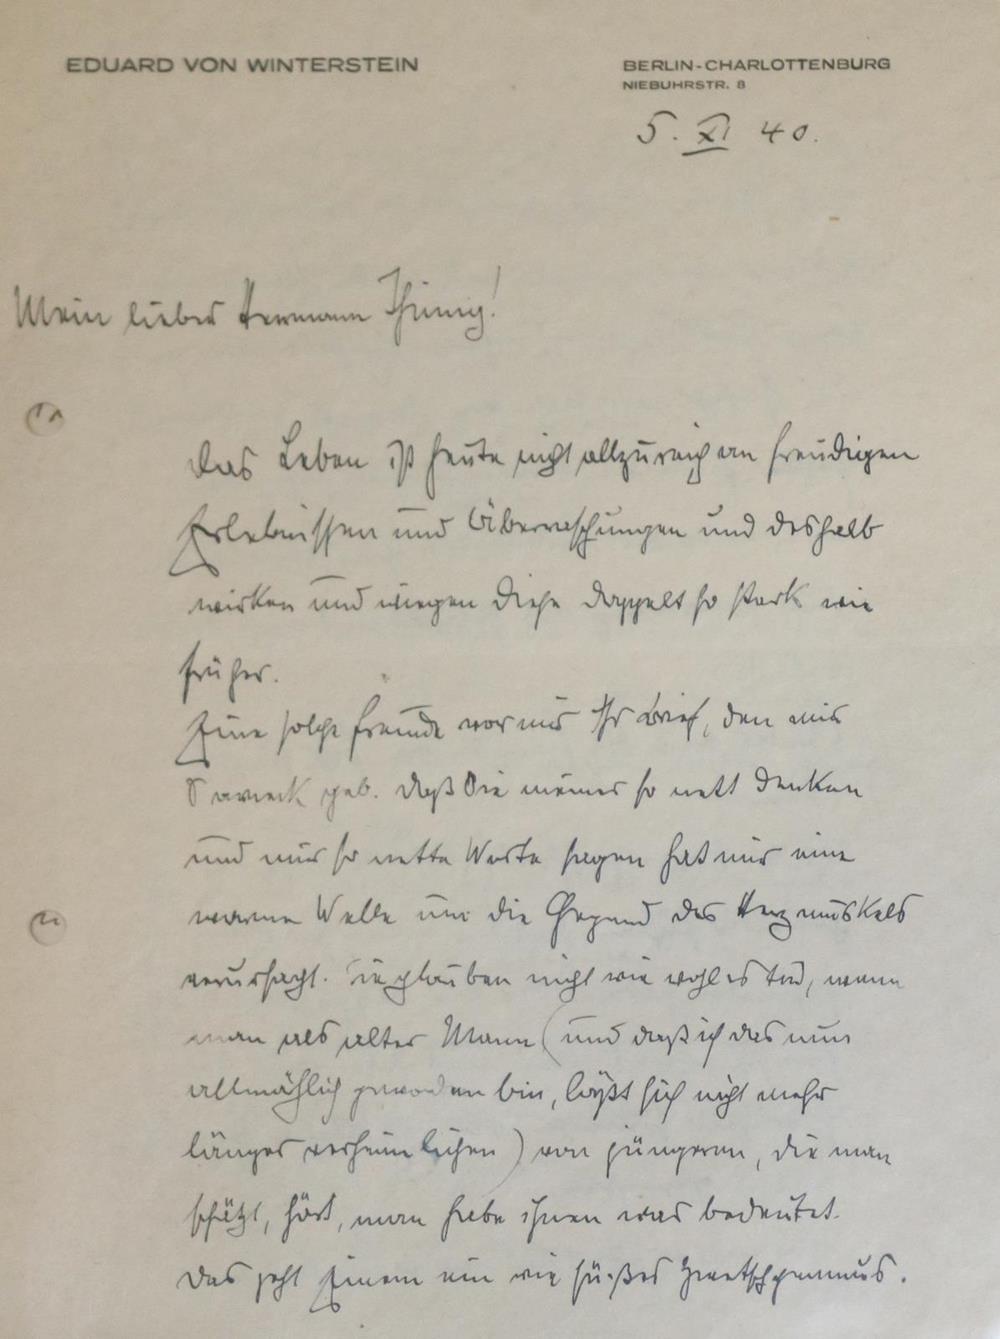 EDUARD VON WINTERSTEIN
BERLIN-CHARLOTTENBURG
NIEBUHRSTR. 8
5. XI 40.
Mein lieber Hermann Thimig!
das Leben ist heute nicht allzureich an freudigen
Erlebnissen und Überraschungen und deshalb
wirken und wiegen diese doppelt so stark wie
früher.
Eine solche Freude war mir Ihr Brief, den mir
gab. Daß Sie meiner so nett denken
und mir so nette Worte sagen hat mir eine
warme Welle um die Gegend des Herzmuskels
verursacht. Sie glauben nicht wie wohl es tut, wenn
man als alter Mann (und daß ich das nun
allmählich geworden bin, läßt sich nicht mehr
länger verheimlichen) von jüngeren, die man
schätzt, hört, man habe ihnen was bedeutet.
Das geht Einem ein wie süßes